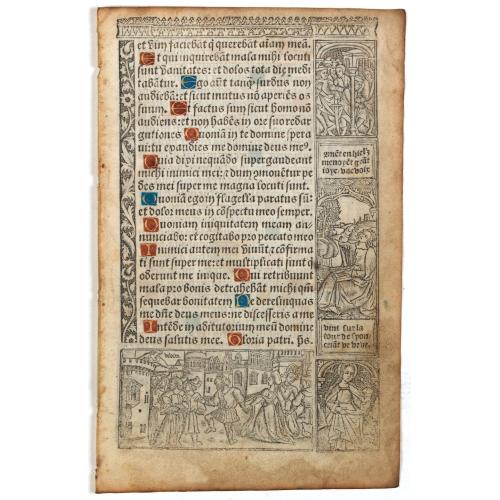 et vim faciebāt q̄ querebāt aīam meā.
Et qui inquirebāt mala mihi locuti
sunt vanitates: et dolos tota die medi
tabātur. Ego aūt tanq̄ surdus non
audiebā: et sicut mutus nō aperiēs os
suum. Et factus sum sicut homo nō
audiens: et non habēs in ore suo redar
gutiones. Quoniā in te domine spera
ui: tu exaudies me domine deus me⁹.
Quia dixi nequādo supergaudeant
michi inimici mei: z dum cōmouētur pe
des mei super me magna locuti sunt.
Quoniā ego in flagella paratus sū:
et dolor meus in cōspectu meo semper.
Quoniam iniquitatem meam an
nunciabo: et cogitabo pro peccato meo
Inimici autem mei viuūt z cōfirma
ti sunt super me: et multiplicati sunt q
oderunt me inique. Qui retribuunt
mala pro bonis detrahebāt michi qm̄
sequebar bonitatem Ne derelinquas
me dn̄e deus meus: ne discesseris a me
Intēde in adiutorium meū domine
deus salutis mee. Gloria patri. ps.
vint sur la
tour de